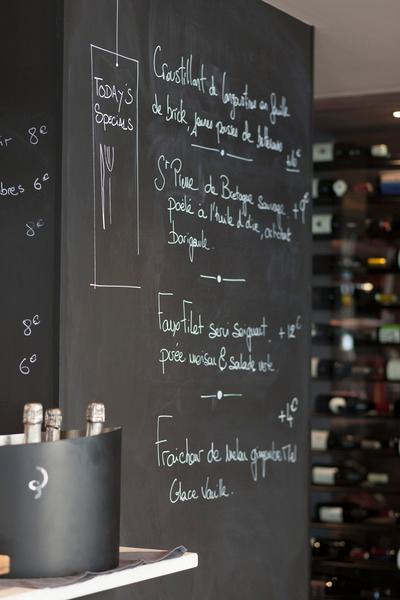 8€
bres 6€
8€
8€
6€
TODAY'S
Specials
Croustillant de langoustine en feuille
de brick, jeunes pousses de betteraves
St Pierre de Bretagne sauvage +9€
poêlé à l'huile d'olive, artichaut
barigoule.
Faux Filet servi saignant. +12€
purée maison & salade verte.
+4€
Fraicheur de melon gingembre Miel
Glace Vanille.